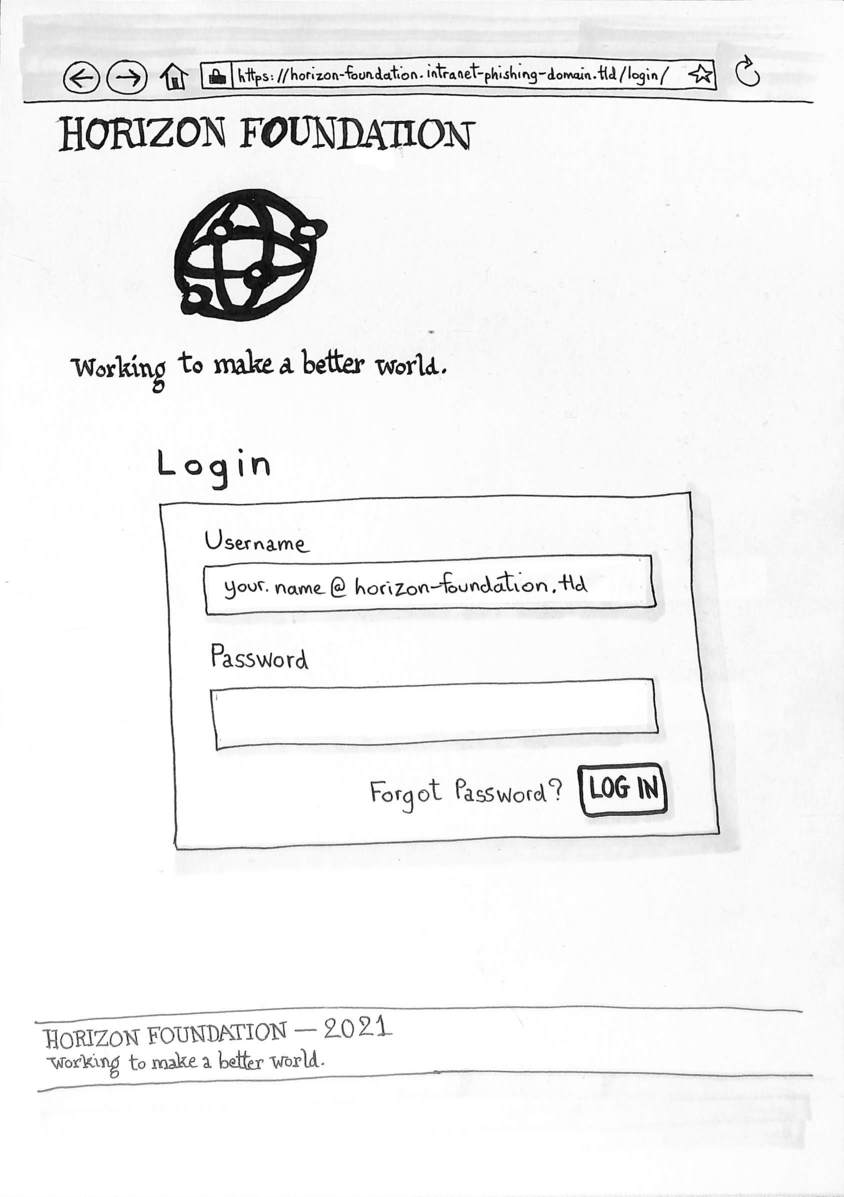 https://horizon-foundation.intranet-phishing-domain.tld/login/
HORIZON FOUNDATION
Working to make a better world.
Login
Username
your.name@horizon-foundation.tld
Password
Forgot Password? LOG IN
HORIZON FOUNDATION — 2021
Working to make a better world.